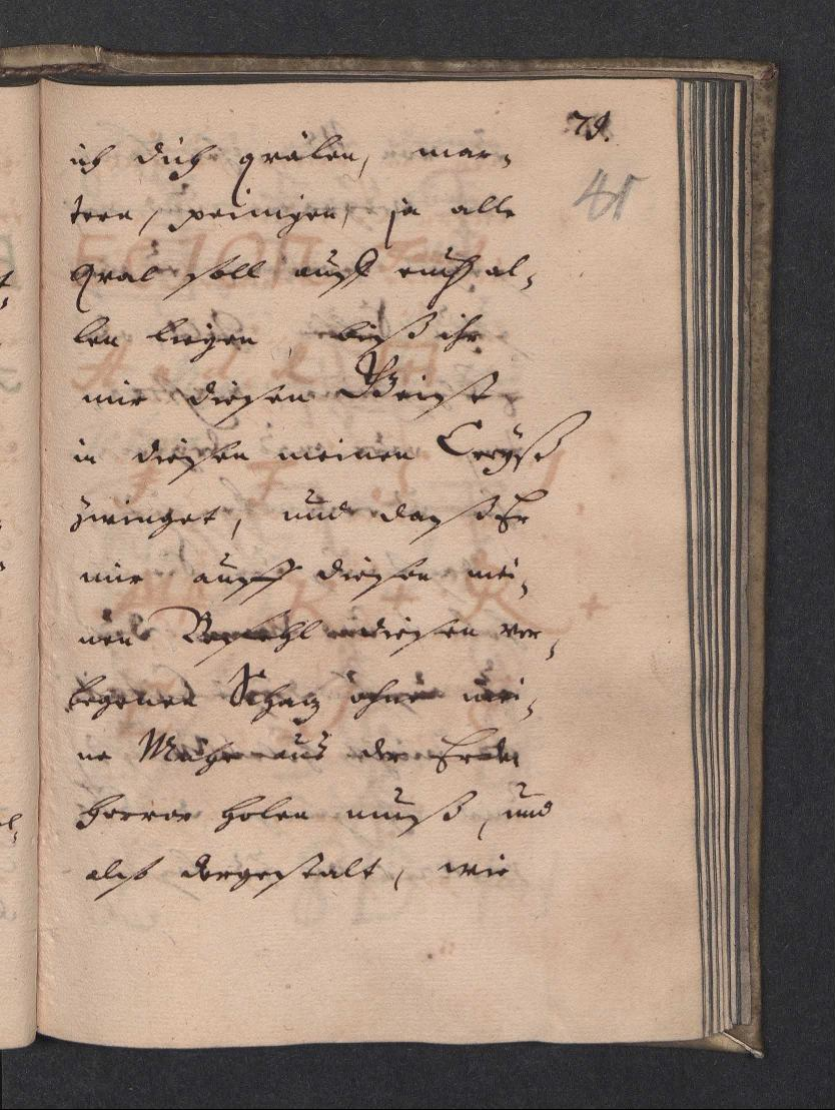 79.
41
ich dich qvälen, mar-
tern, peinigen, ja alle
Qval soll auff euch al-
len liegen, biß ihr
mir diesen Geist
in diesen meinen Creyß
zwinget, und daß Er
mir auff diesen mei-
nen Befehl diesen ver-
borgenen Schatz ohne mei-
ne Mühe aus der Erden
hervor holen muß, und
also dergestalt, wie